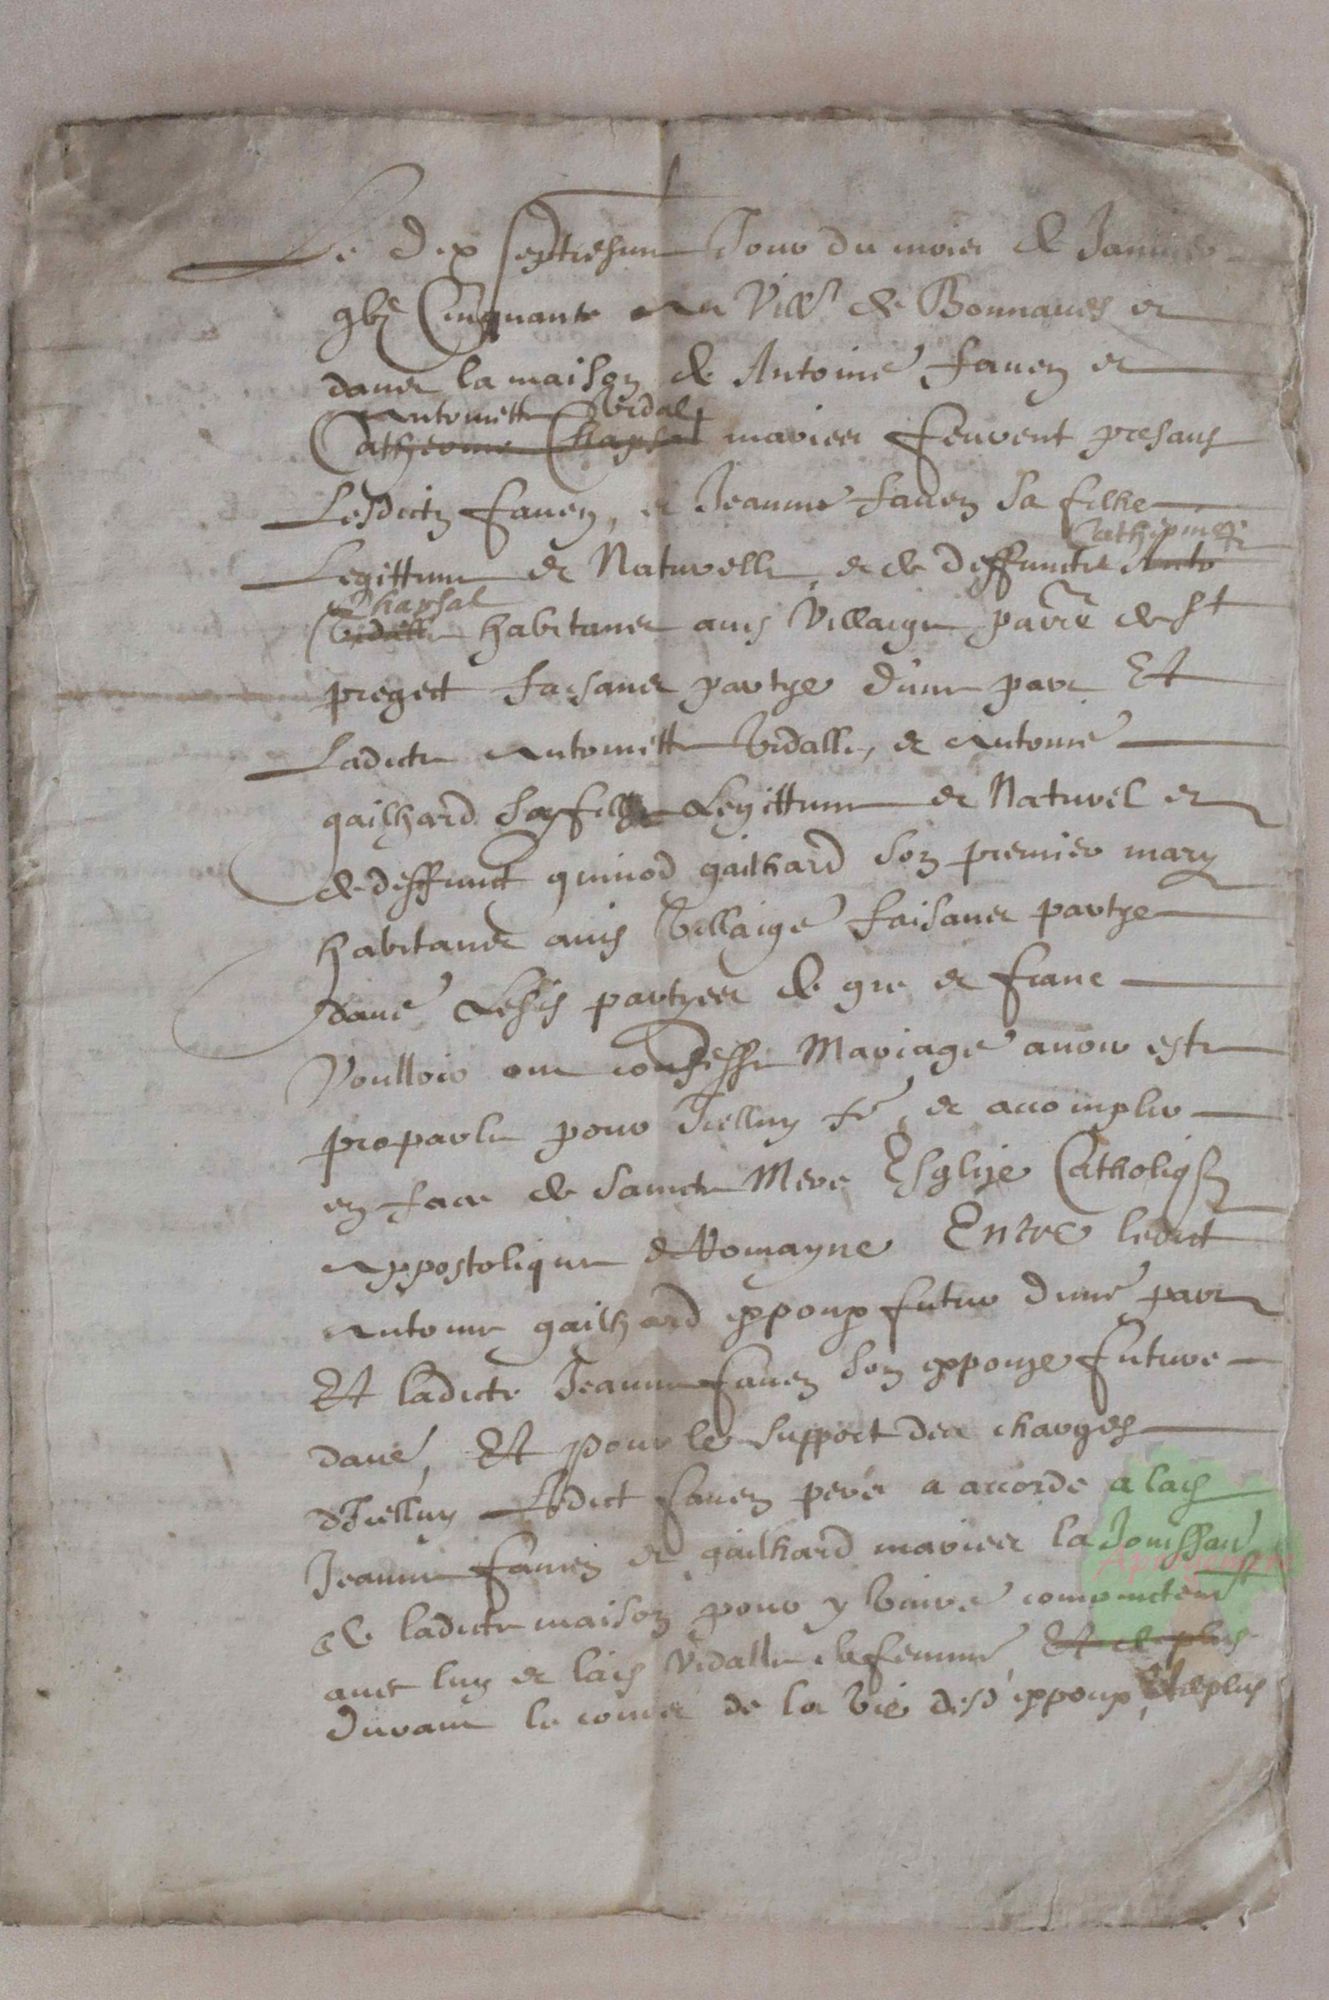 Le dix septiesme Jour du mois de Janvier
gbi Cinquante au Vill. de Bonnaves et
dans la maison de Antoine faven et
Antoinette Vidal
Catherine Chapsal maries feurent presans
Lesdictz faven, et Jeanne faven sa filhe
Catherine
Legittime et Naturelle et de deffuncte Anto
Chapsal
Vidalle habitans aud Villaige parre de St
preget faisans partye d'une part Et
Ladicte Antoinette Vidalle, et Antoine
gailhard son filz Legittime et Naturel et
de deffunct guinod gailhard son premier mary
habitans aud Villaige faisans partye
daue Lesds partyes de gre et franc
Voulloir ont confesse Mariage avoir este
proparle pour Icelluy fe, et accomplir
en face de saincte Mere Esglize Catholiq
Appostolique & Romayne Entre ledict
Antoine gailhard expoux futur d'une part
Et ladicte Jeanne faven son expouze future
daue, Et pour le support des charges
d'Icelluy Ledict faven pere a accorde a lad
Jeanne faven et gailhard maries la Jouissan
de ladicte maison pour y vivre conjoinctem
avec luy et lad Vidalle sa femme, Et de plus
Durant le cours de la vie desd expoux, Et de plus